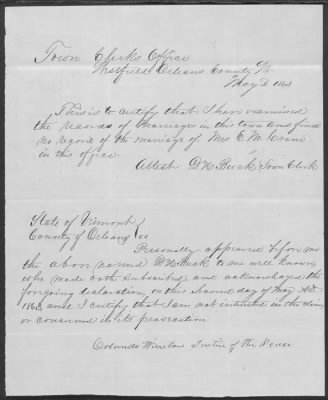 Town Clerks Office
Westfield Orleans County Vt
May 2d 1863
This is to certify that I have examined
the records of marriages in this town and find
no record of the marriage of Mrs E. M.
in this office
Attest D H Buck Town Clerk
State of Vermont
County of Orleans ss
Personally appeared before me
the above named D H Buck to me well known
who made oath subscribed and acknowledged the
foregoing declaration, on this second day of May AD
1863, and I certify that I am not intrested in the claim
or concerned in its prosecution
Orlando Winslow Justice of the Peace